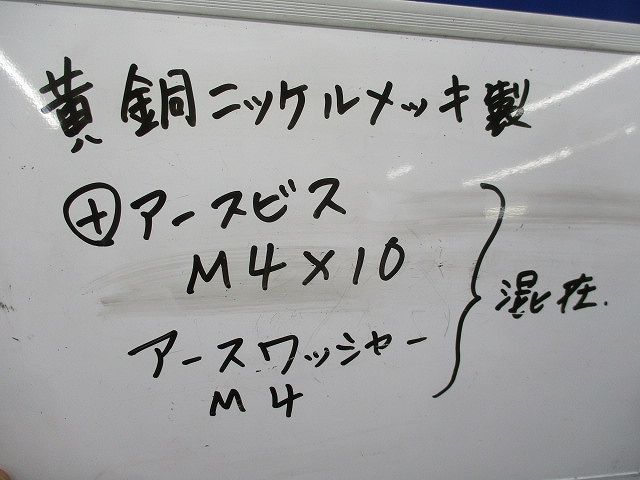 黄銅ニッケルメッキ製
⊕アースビス
M4×10
アースワッシャー
M4
混在.